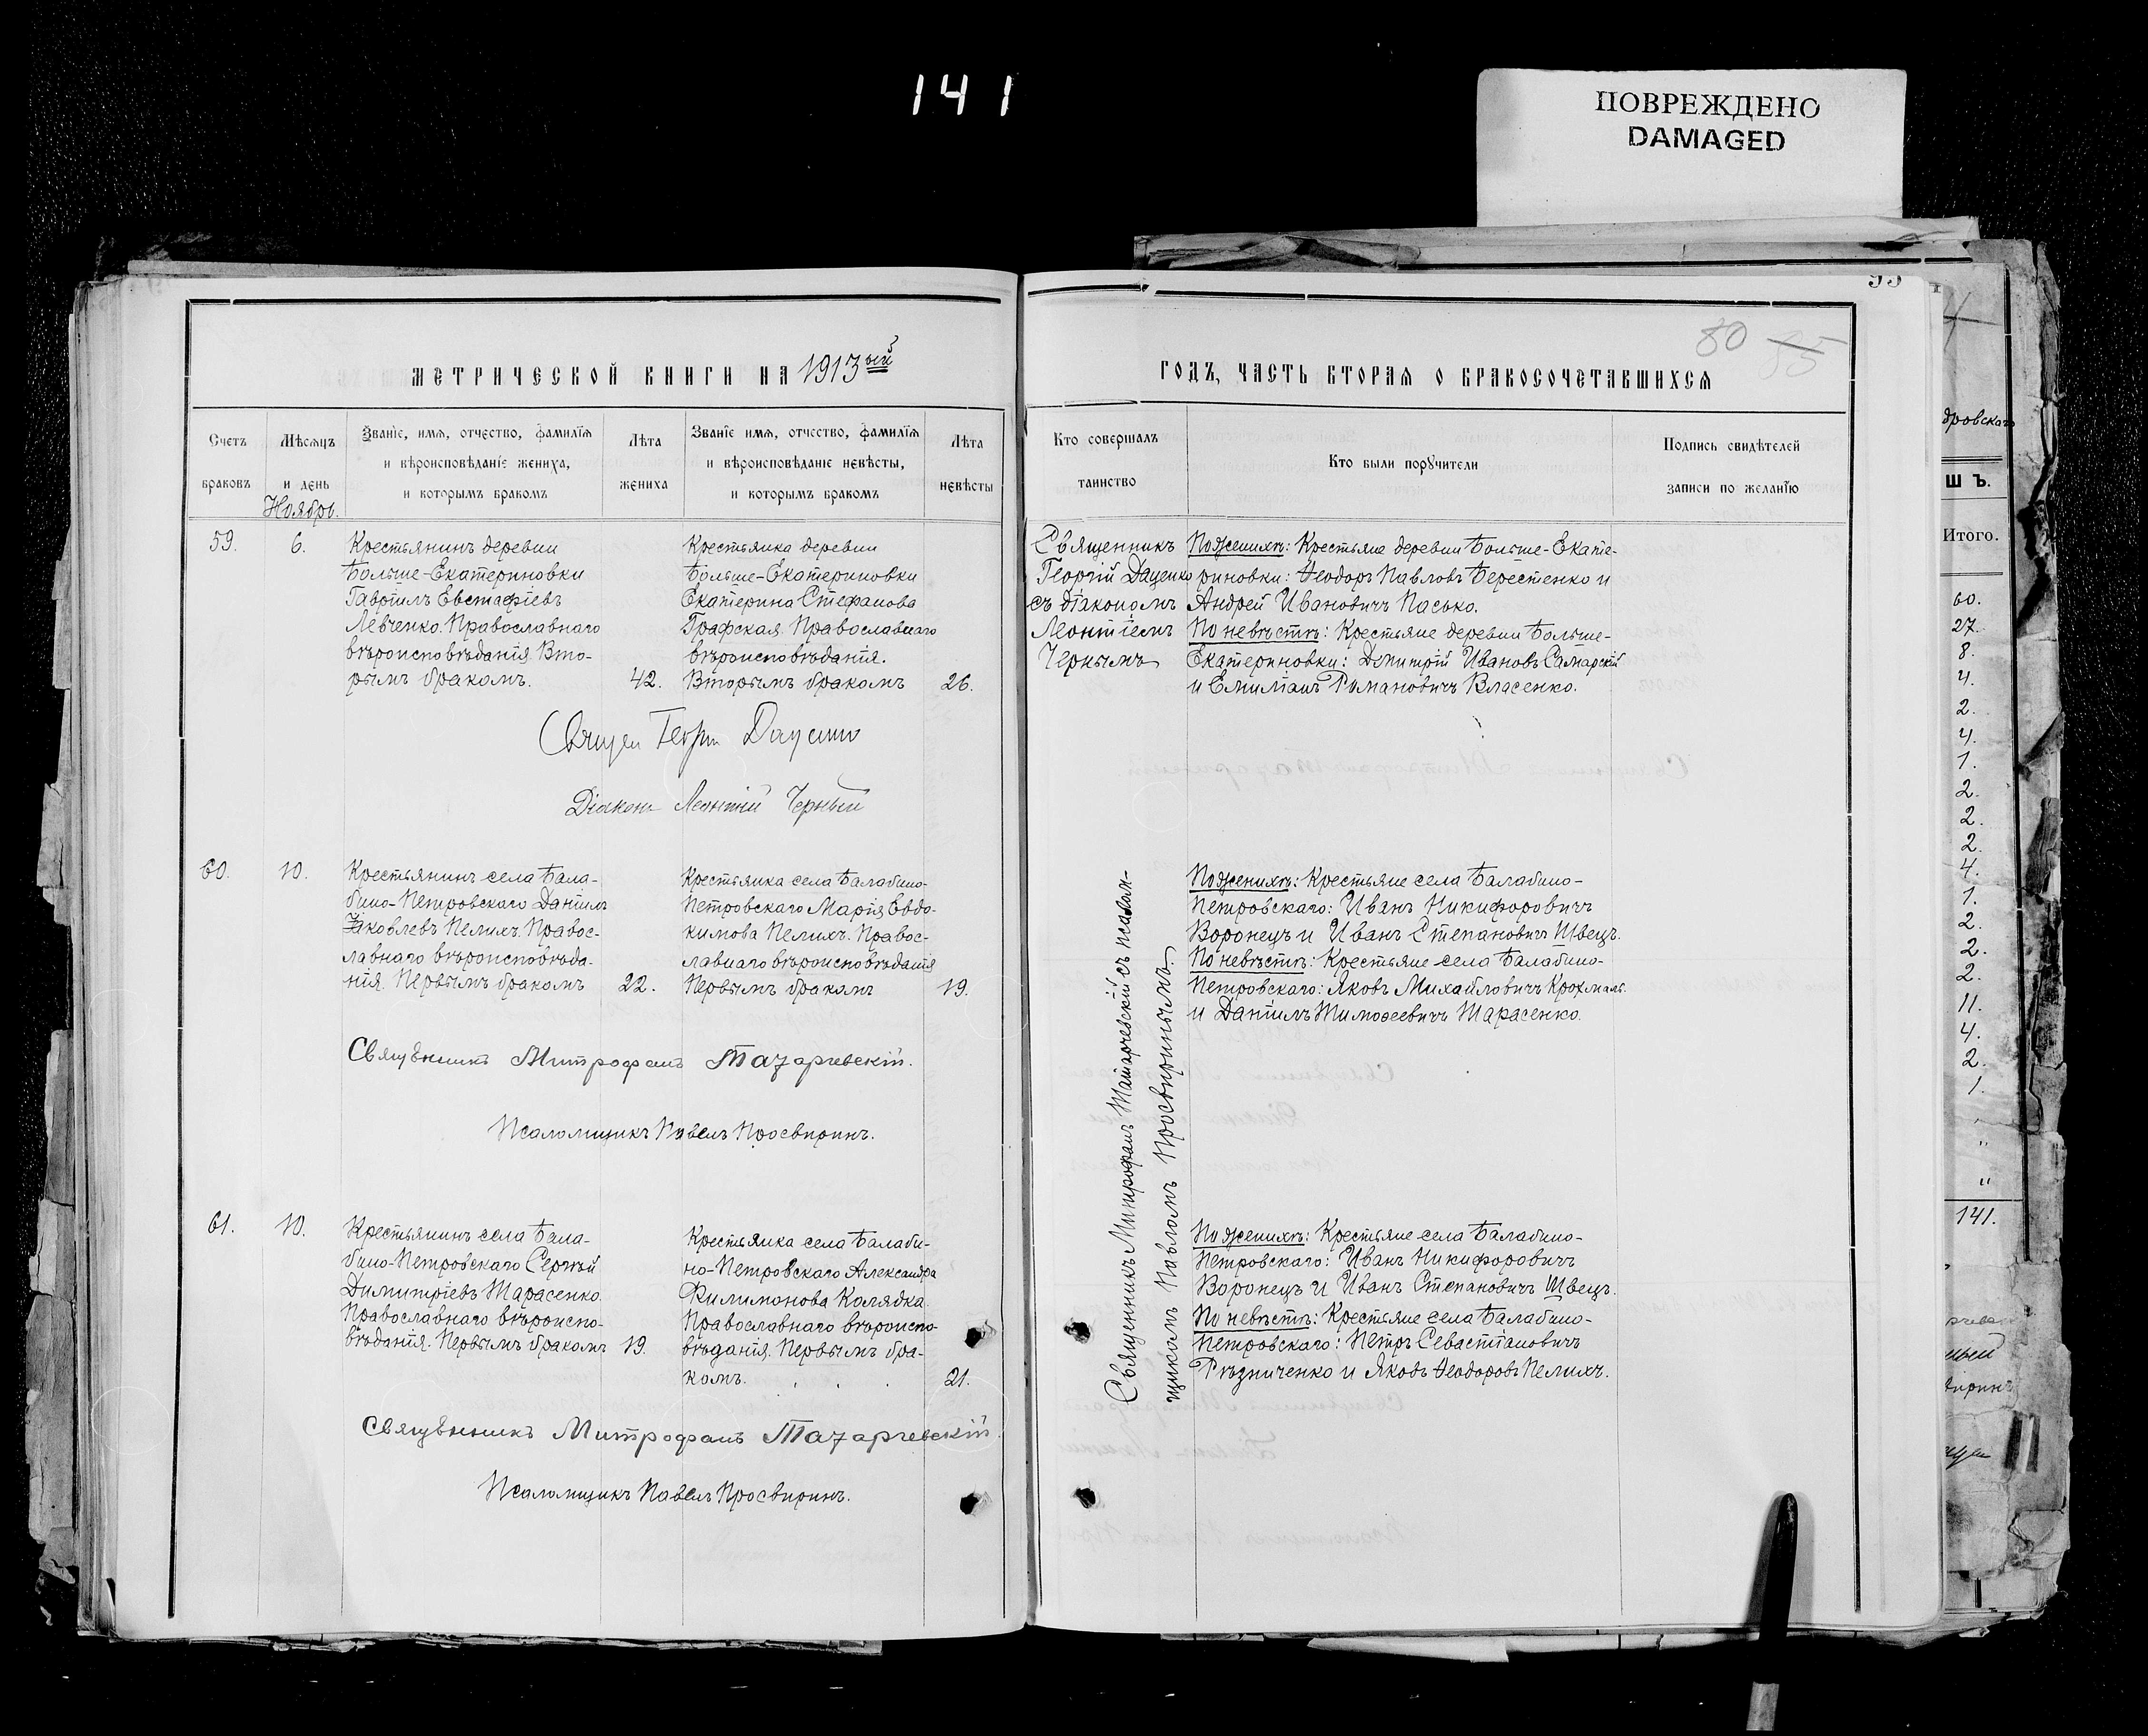 141
ПОВРЕЖДЕНО
DAMAGED
МЕТРИЧЕСКОЙ КНИГИ НА 1913ый
Счетъ браковъ
Мѣсяцъ и день
Званіе, имя, отчество, фамилія
и вѣроисповѣданіе жениха,
и которымъ бракомъ
Лѣта жениха
Званіе имя, отчество, фамилія
и вѣроисповѣданіе невѣсты,
и которымъ бракомъ
Лѣта невѣсты
Ноябрь.
59.
6.
Крестьянинъ деревни
Больше-Екатериновки
Гавріилъ Евстафіевъ
Левченко. Православнаго
вѣроисповѣданія. Вто-
рымъ бракомъ.
42.
Крестьянка деревни
Больше-Екатериновки
Екатерина Стефанова
Графская. Православнаго
вѣроисповѣданія.
Вторымъ бракомъ
26.
Діаконъ Леонтій Черный
60.
10.
Крестьянинъ села Бала-
бино-Петровскаго Даніилъ
Яковлевъ Пелихъ. Правос-
лавнаго вѣроисповѣда-
нія. Первымъ бракомъ
22.
Крестьянка села Балабино-
Петровскаго Марія Евдо-
кимова Пелихъ. Правос-
лавнаго вѣроисповѣданія
Первымъ бракомъ
19.
Священникъ Митрофанъ
Псаломщикъ Павелъ Просвиринъ.
61.
10.
Крестьянинъ села Бала-
бино-Петровскаго Сергѣй
Димитріевъ Тарасенко.
Православнаго вѣроиспо-
вѣданія. Первымъ бракомъ
19.
Крестьянка села Балаби-
но-Петровскаго Александра
Филимонова Калядка.
Православнаго вѣроиспо-
вѣданія. Первымъ бра-
комъ.
21.
Священникъ Митрофанъ
Псаломщикъ Павелъ Просвиринъ.
80 95
ГОДЪ, ЧАСТЬ ВТОРАЯ О БРАКОСОЧЕТАВШИХСЯ
Кто совершалъ
таинство
Кто были поручители
Подпись свидѣтелей
записи по желанію
Священникъ
Георгій Даценко
съ діакономъ
Леонтіемъ
Чернымъ
По женихѣ: Крестьяне деревни Больше-Екате-
риновки: Ѳеодоръ Павловъ Берестенко и
Андрей Ивановичъ Пасько.
По невѣстѣ: Крестьяне деревни Больше-
Екатериновки: Димитрій Ивановъ Самарскій
и Емиліанъ Романовичъ Власенко.
Священникъ Митрофанъ съ псалом-
щикомъ Павломъ Просвиринымъ
По женихѣ: Крестьяне села Балабино-
Петровскаго: Иванъ Никифоровичъ
Воронецъ и Иванъ Степановичъ Швецъ.
По невѣстѣ: Крестьяне села Балабино-
Петровскаго: Яковъ Михайловичъ Крохмаль
и Даніилъ Тимоѳеевичъ Тарасенко.
По женихѣ: Крестьяне села Балабино-
Петровскаго: Иванъ Никифоровичъ
Воронецъ и Иванъ Степановичъ Швецъ.
По невѣстѣ: Крестьяне села Балабино-
Петровскаго: Петръ Севастіановичъ
Рѣзниченко и Яковъ Ѳеодоровъ Пелихъ.
дровскаго
Ш Ъ.
Итого.
60.
27.
8.
4.
2.
4.
1.
2.
2.
2.
4.
1.
2.
2.
2.
11.
4.
2.
1.
"
"
141.